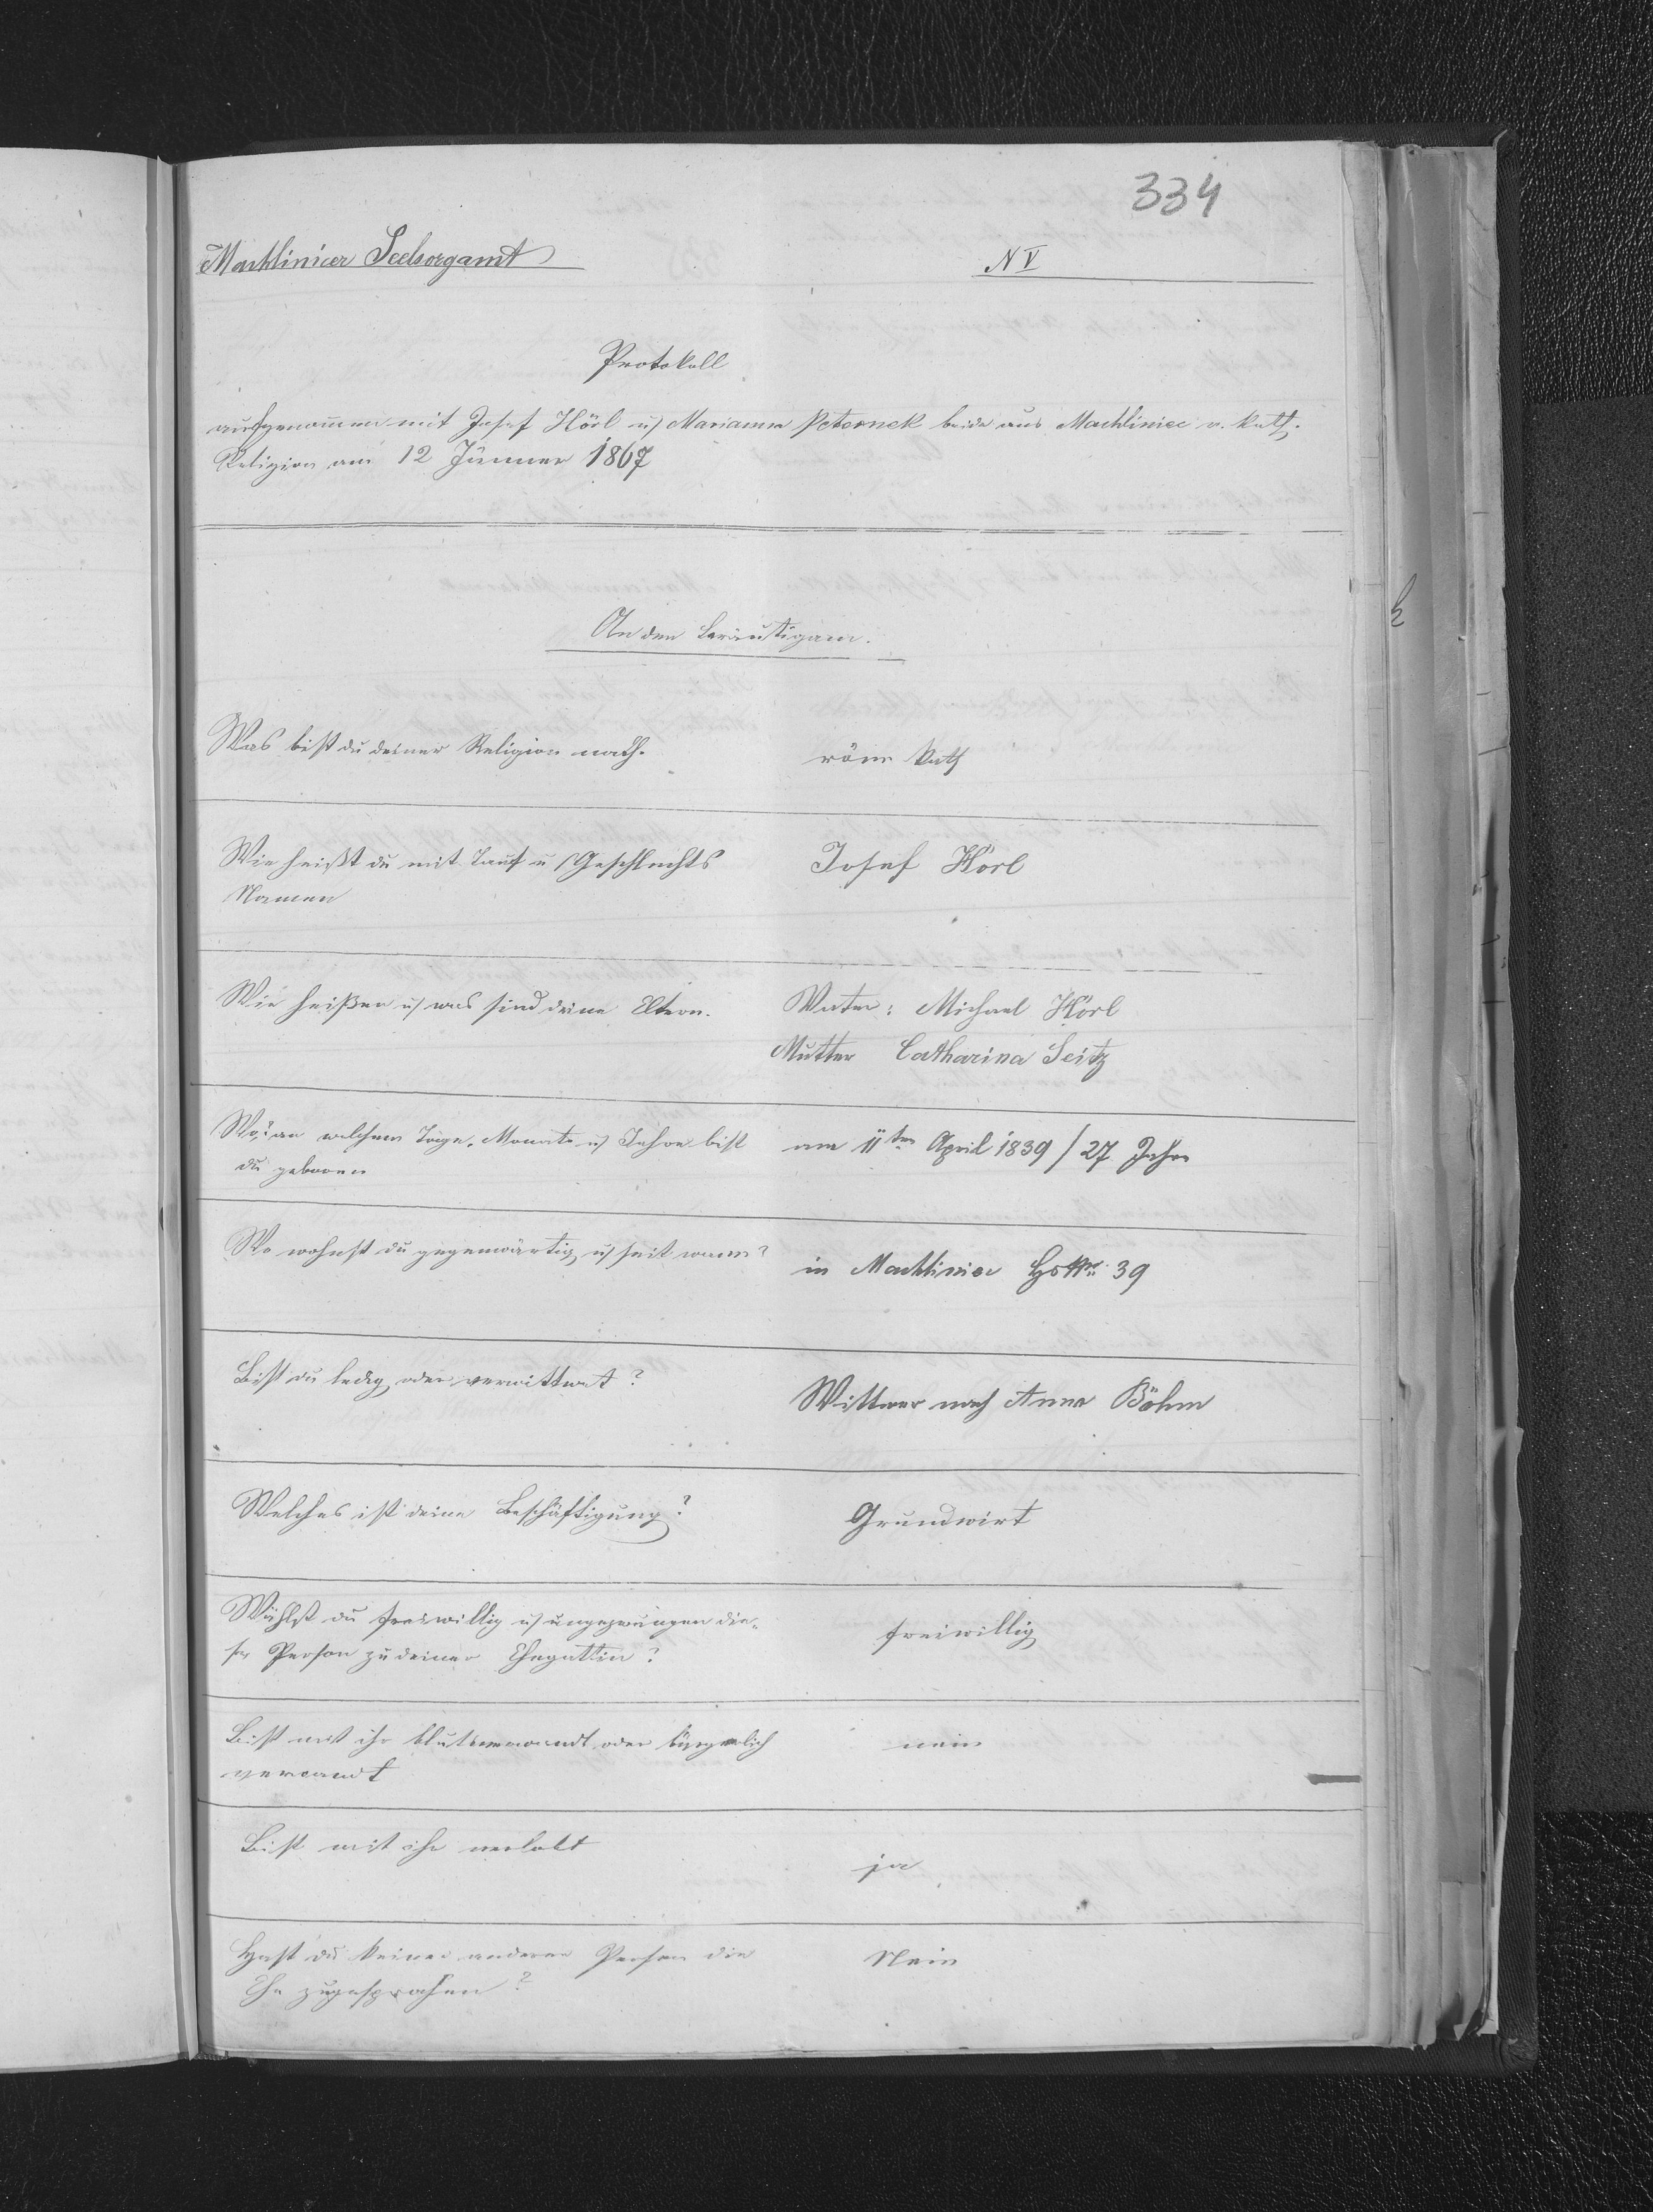 334
Machlinicer Seelsorgamt
N V
Protokoll
aufgenommen mit Josef Hörl u Marianna Peternek beide aus Machliniec r. kath.
Religion am 12 Jänner 1867
An den Bräutigam.
Was bist du deiner Religion nach.
röm kath
Wie heißt du mit Tauf u Geschlechts
Namen
Josef Hörl
Wie heißen u was sind deine Eltern.
Vater: Michael Hörl
Mutter Catharina Seitz
Wo, an welchem Tage, Monate u Jahre bist
du geboren
am 11ten April 1839 / 27 Jahre
Wo wohnst du gegenwärtig u seit wann?
in Machliniec Hs Nro 39
Bist du ledig oder verwittwet?
Wittwer nach Anna Böhm
Welches ist deine Beschäftigung?
Grundwirt
Wählst du freiwillig u ungezwungen die-
se Person zu deiner Ehegattin?
freiwillig
Bist mit ihr blutsverwandt oder bürgerlich
verwandt
nein
Bist mit ihr verlobt
ja
Hast du keiner anderen Person die
Ehe zugesprochen?
Nein